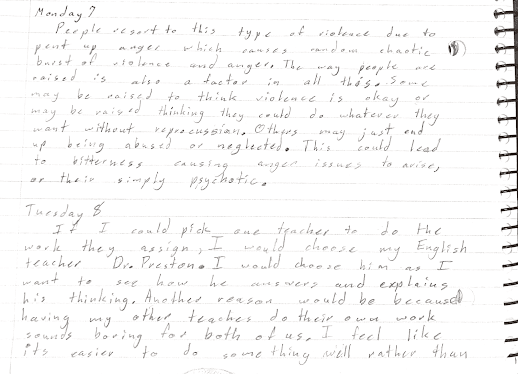 Monday 7
People resort to this type of violence due to
pent up anger which causes random chaotic
burst of violence and anger. The way people are
raised is also a factor in all this. Some
may be raised to think violence is okay or
may be raised thinking they could do whatever they
want without reprocussian. Others may just end
up being abused or neglected. This could lead
to bitterness causing anger issues to arise,
or their simply psychotic.
Tuesday 8
If I could pick one teacher to do the
work they assign, I would choose my English
teacher Dr. Preston. I would choose him as I
want to see how he answers and explains
his thinking. Another reason would be because
having my other teaches do their own work
sounds boring for both of us. I feel like
its easier to do something well rather than